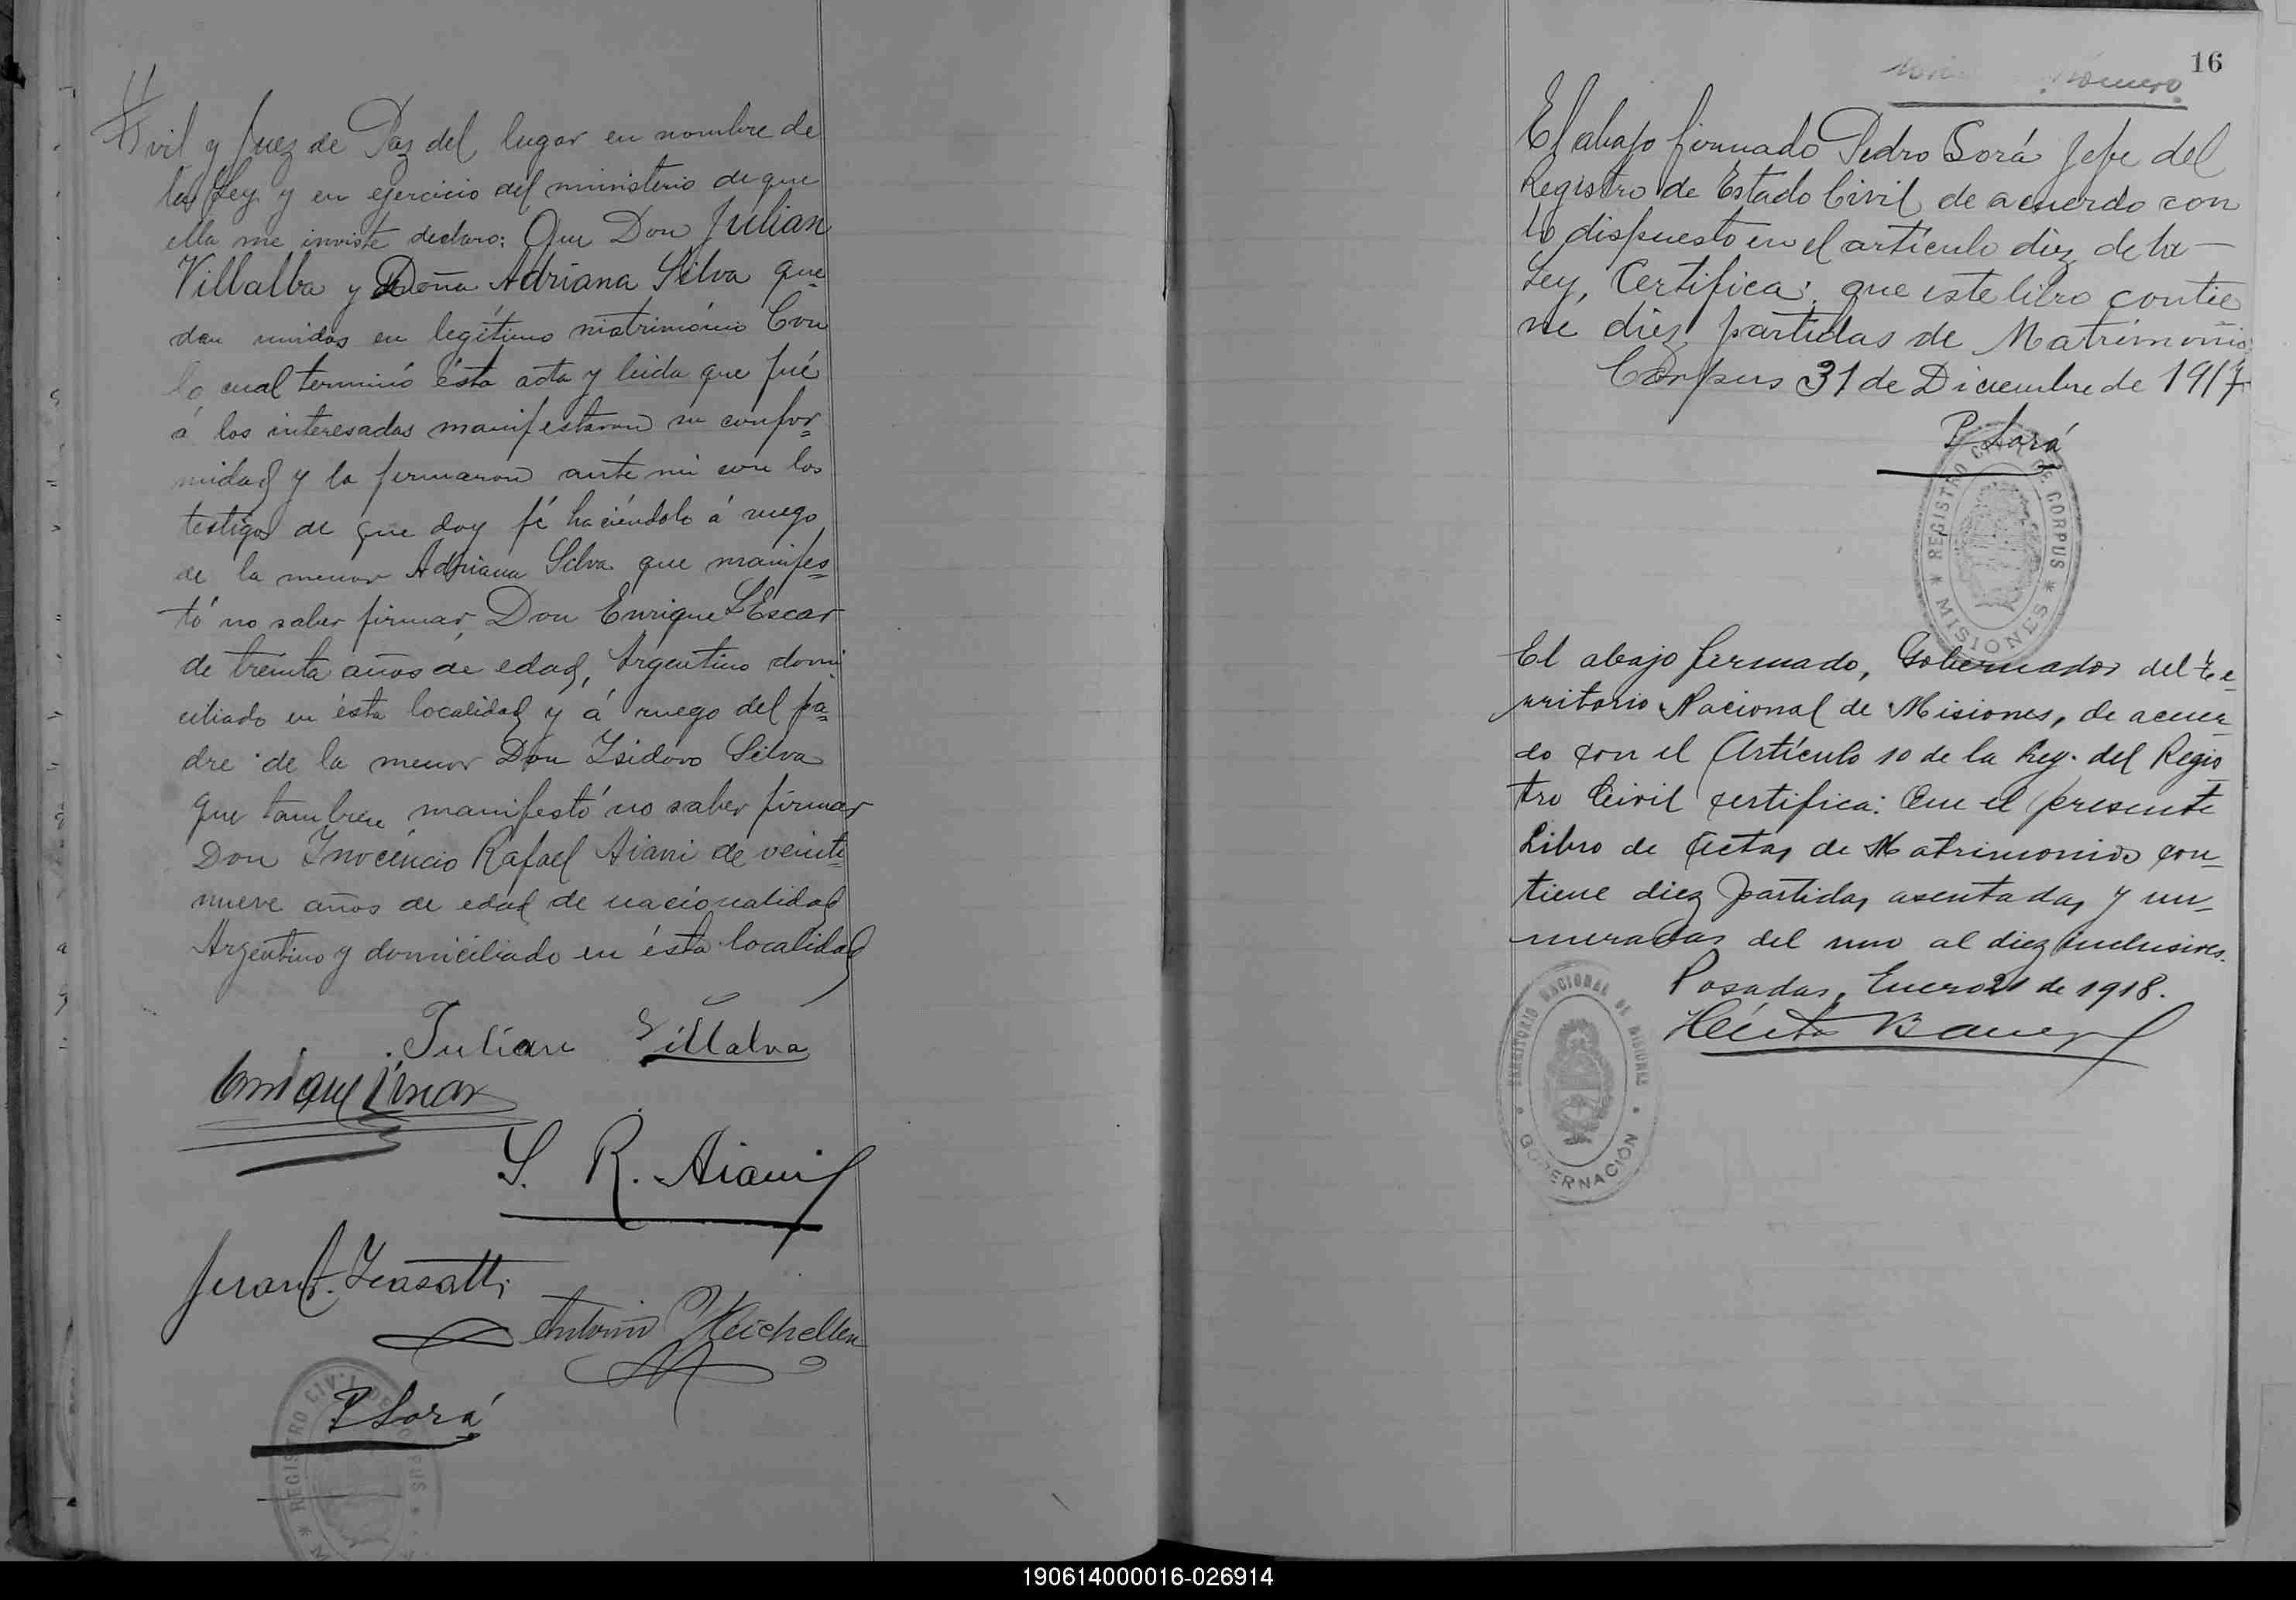 vil y Juez de Paz del lugar en nombre de
la Ley y en ejercicio del ministerio de que
ella me inviste declaro: Que Don Julian
Villalba y Doña Adriana Silva que=
dan unidos en legítimo matrimonio Con
lo cual terminó ésta acta y leida que fué
á los interesados manifestaron su confor=
midad y la firmaron ante mi con los
testigos de que doy fé haciéndolo á ruego
de la menor Adriana Silva que manifes=
tó no saber firmar, Don Enrique L'Escar
de treinta años de edad, Argentino domi
ciliado en ésta localidad y á ruego del pa=
dre de la menor Don Isidoro Silva
que tambien manifestó no saber firmar
Don Inocencio Rafael Aiani de veinti=
nueve años de edad de nacionalidad
Argentino y domiciliado en ésta localidad
Julian Villalva
Enrique
R. Aiani
Antonio
P Sorá
REGISTRO CIVIL DE CORPUS
16
Número
El abajo firmado Pedro Sorá Jefe del
Registro de Estado Civil de acuerdo con
lo dispuesto en el artículo diez de la
Ley, Certifica: que este libro contie
ne diez partidas de Matrimonio
Corpus 31 de Diciembre de 1917
P Sorá
REGISTRO CIVIL DE CORPUS
* MISIONES *
El abajo firmado, Gobernador del Te=
rritorio Nacional de Misiones, de acuer
do con el Artículo 10 de la Ley del Regis
tro Civil certifica: Que el presente
Libro de Actas de Matrimonios con=
tiene diez partidas asentadas y nu=
meradas del uno al diez inclusives.
Posadas, Enero 21 de 1918.
TERRITORIO NACIONAL DE MISIONES
GOBERNACIÓN
190614000016-026914